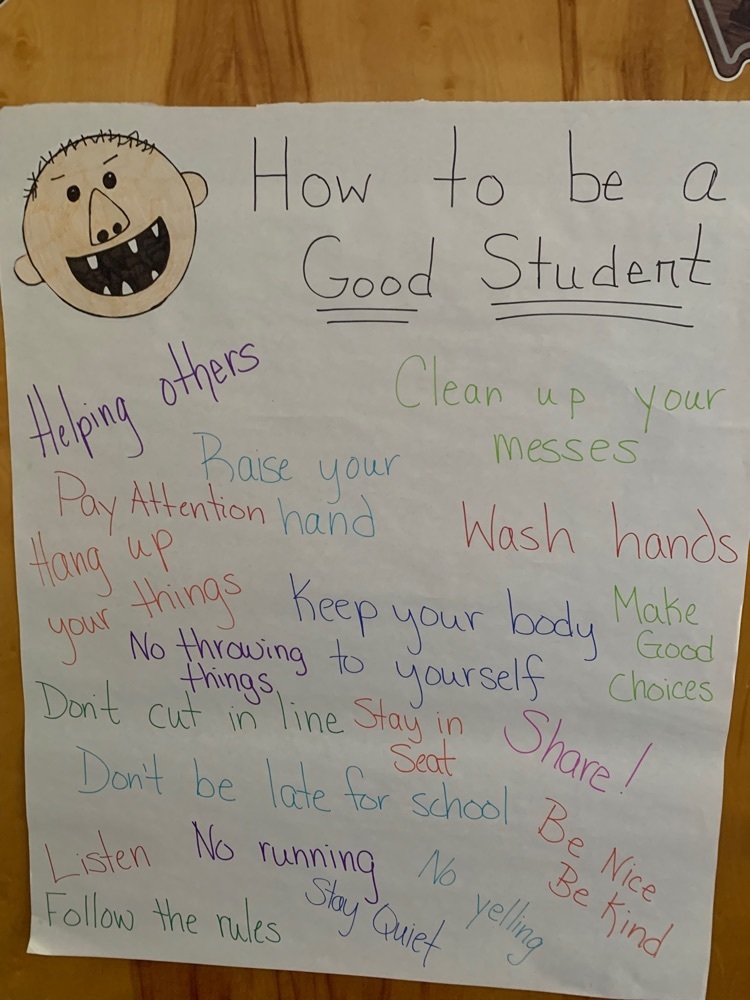 How to be a
Good Student
Helping others
Clean up your
messes
Raise your
hand
Pay Attention
Wash hands
Hang up
your things
Keep your body
to yourself
Make
Good
Choices
No throwing
things
Don't cut in line
Stay in
Seat
Share!
Don't be late for school
Be Nice
Be Kind
Listen
No running
No yelling
Stay Quiet
Follow the rules